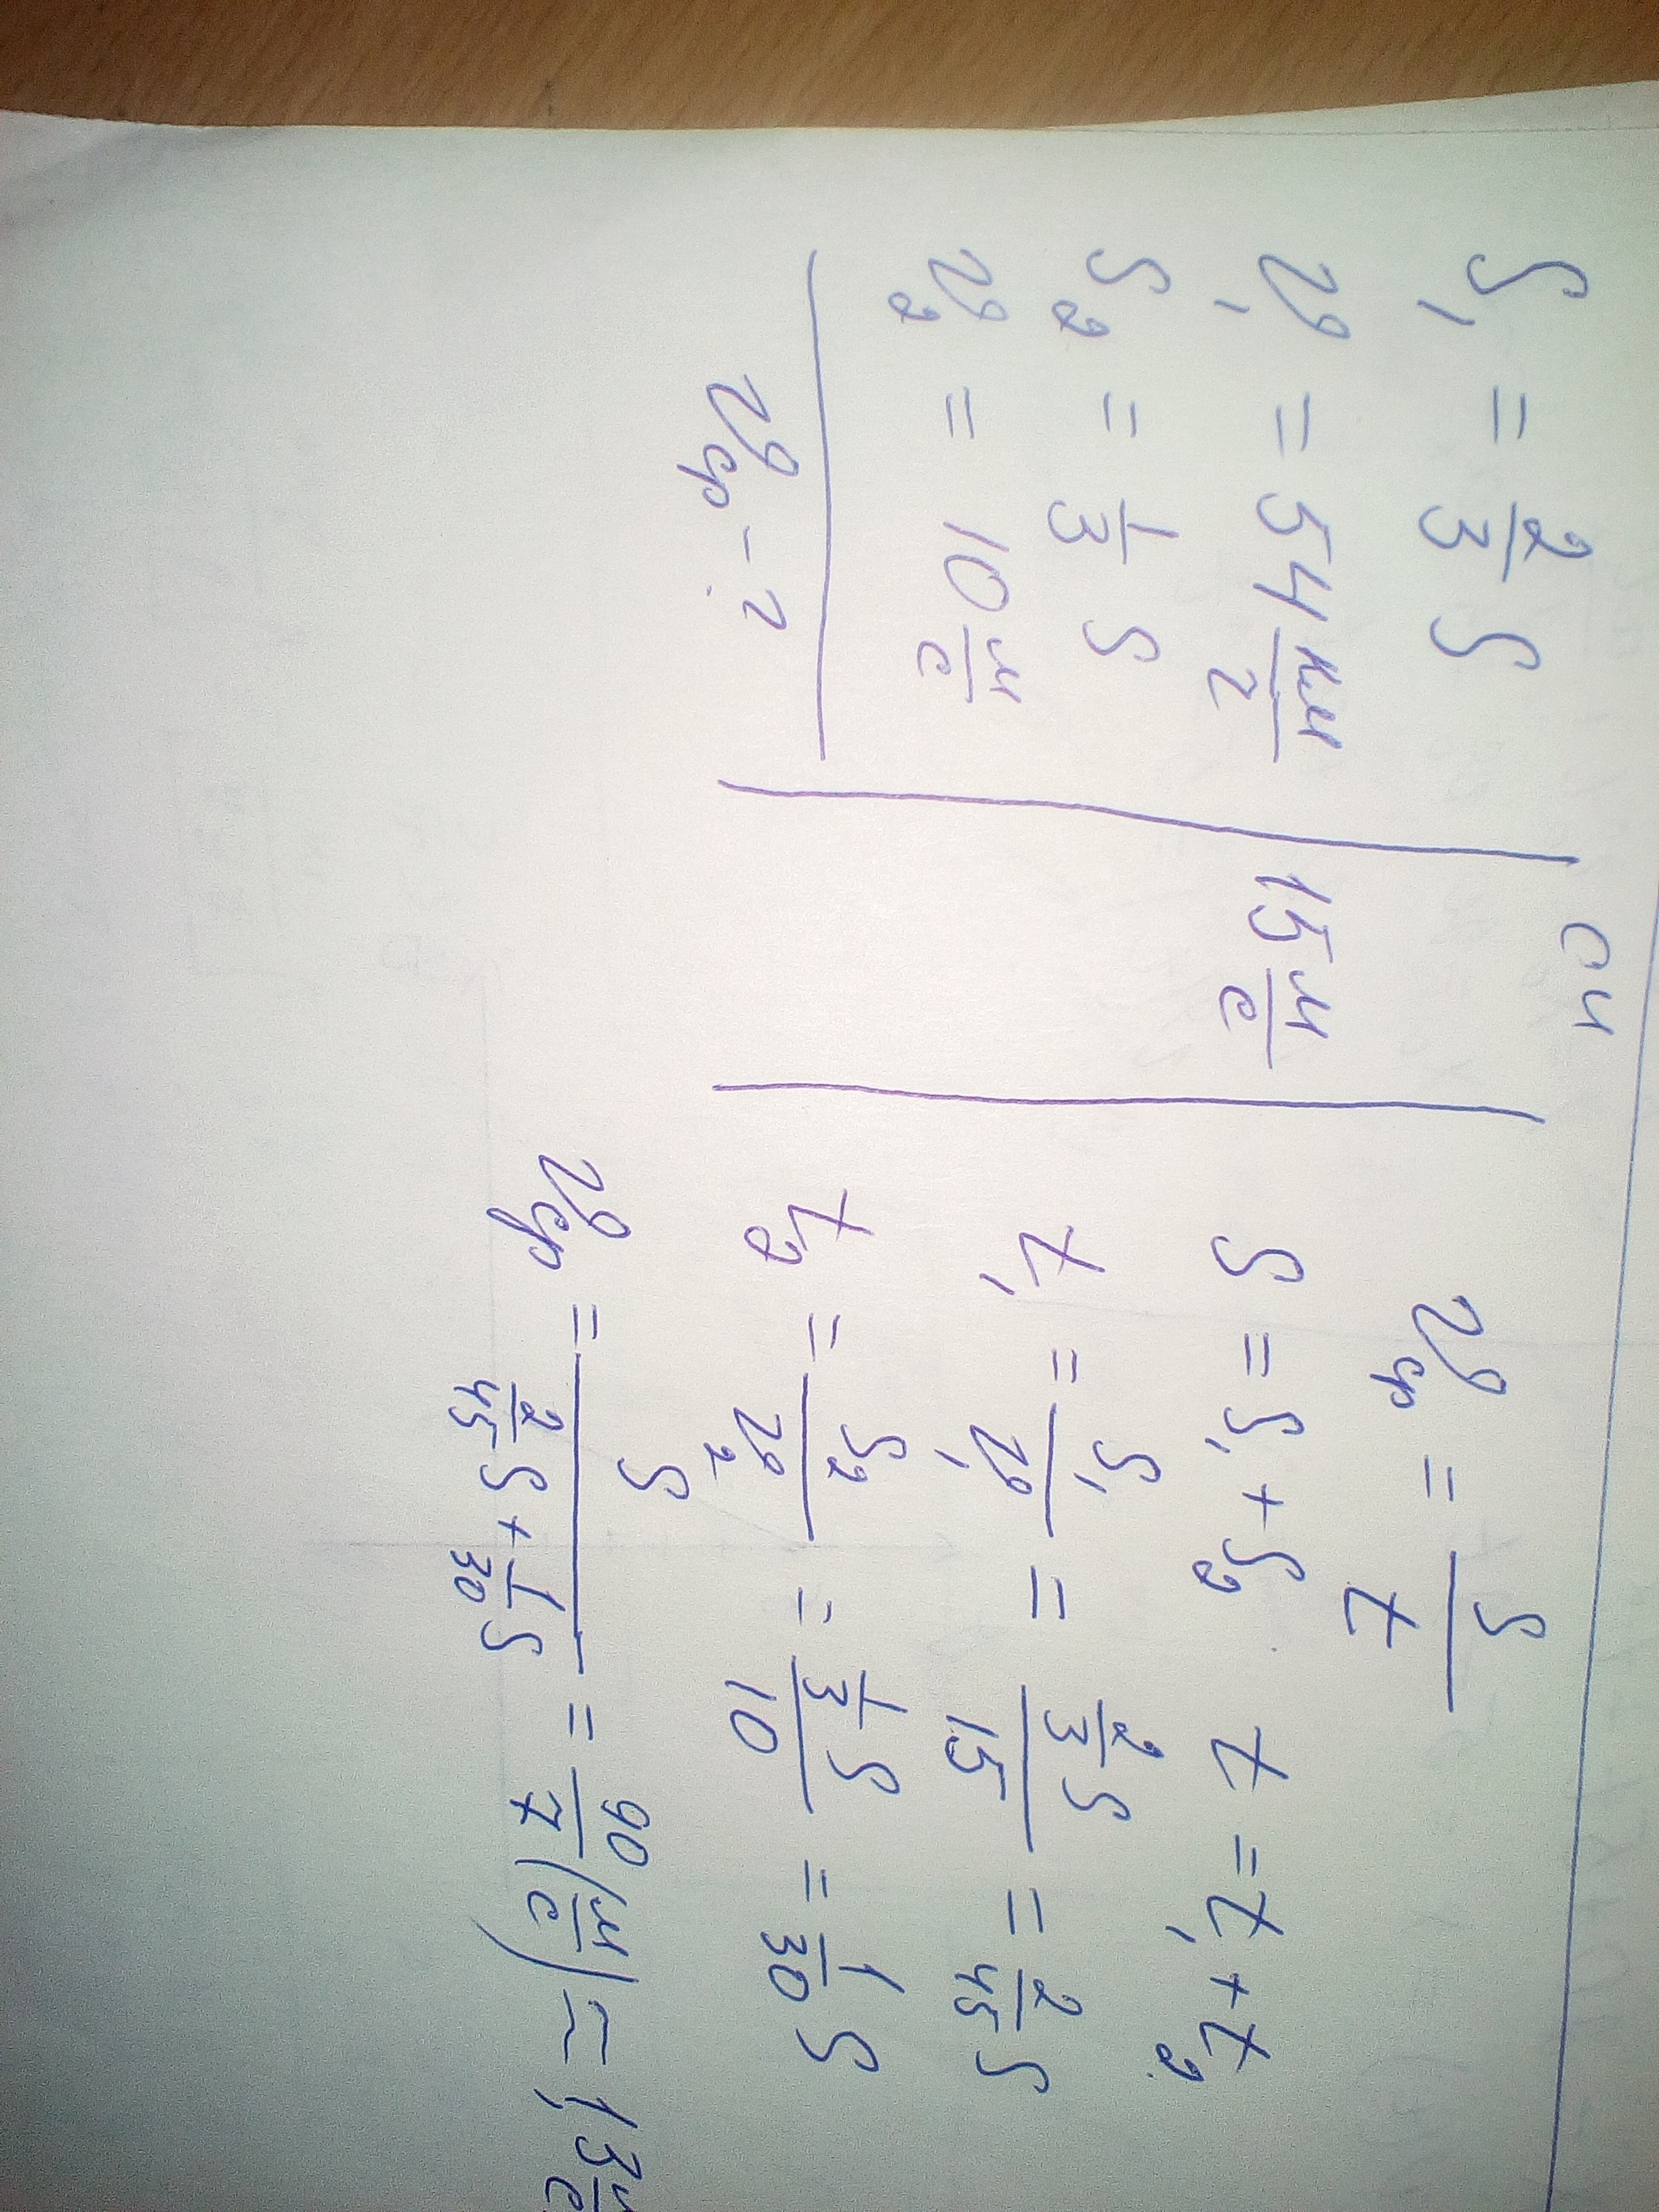 СИ
S₁ = 2/3 S
υ₁ = 54 км/ч
15 м/с
S₂ = 1/3 S
υ₂ = 10 м/с
υср - ?
υср = S/t
S = S₁ + S₂ t = t₁ + t₂
t₁ = S₁/υ₁ = (2/3 S)/15 = 2/45 S
t₂ = S₂/υ₂ = (1/3 S)/10 = 1/30 S
υср = S/(2/45 S + 1/30 S) = 90/7 (м/с) ≈ 13 м/с